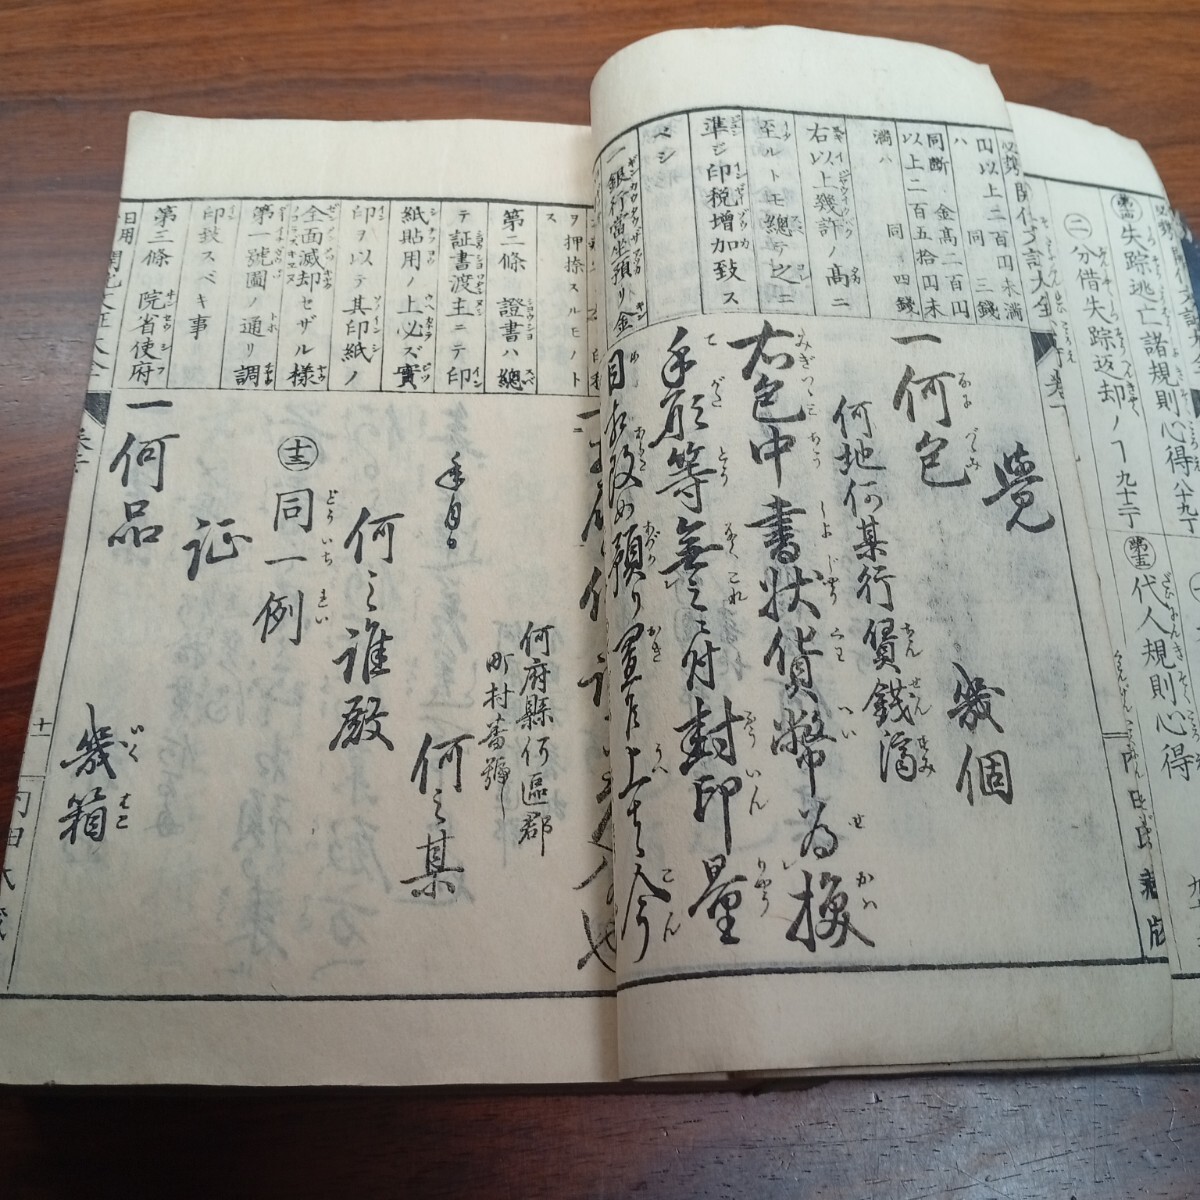 第十四 失踪逃亡諸規則心得 八十九丁
二 分借失踪返却ノ丁 九十二丁
第十五 代人規則心得
円以上二百円未満
ハ 同 三錢
同断 金高二百円
以上二百五拾円未
満ハ 同 四錢
右以上幾許ノ高ニ
至ルトモ總テ之ニ
準ジ印税増加致ス
ベシ
一銀行當坐預リ金
覺
一何包 幾個
何地何某行賃錢濟
右包中書状貨幣為換
手形等無之ニ付封印量
目相改め預り置申上候今
ヲ押捺スルモノト
ス
第二條 證書ハ總
テ証書渡主ニテ印
紙貼用ノ上必ズ實
印ヲ以テ其印紙ノ
全面滅却セザル様
第一號圖ノ通リ調
印致スベキ事
第三條 院省使府
何府縣何區郡
町村蕃號
年月日 何之某
何之誰殿
十三 同一例
証
一何品 幾箱
十一